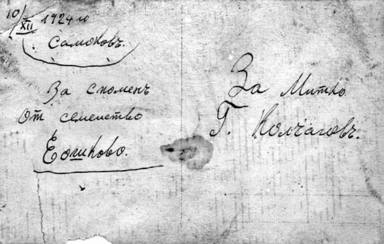 10/XII 1924 го
Самоковъ.
За споменъ
От семейство
За Митко
Г. Колчаговъ.